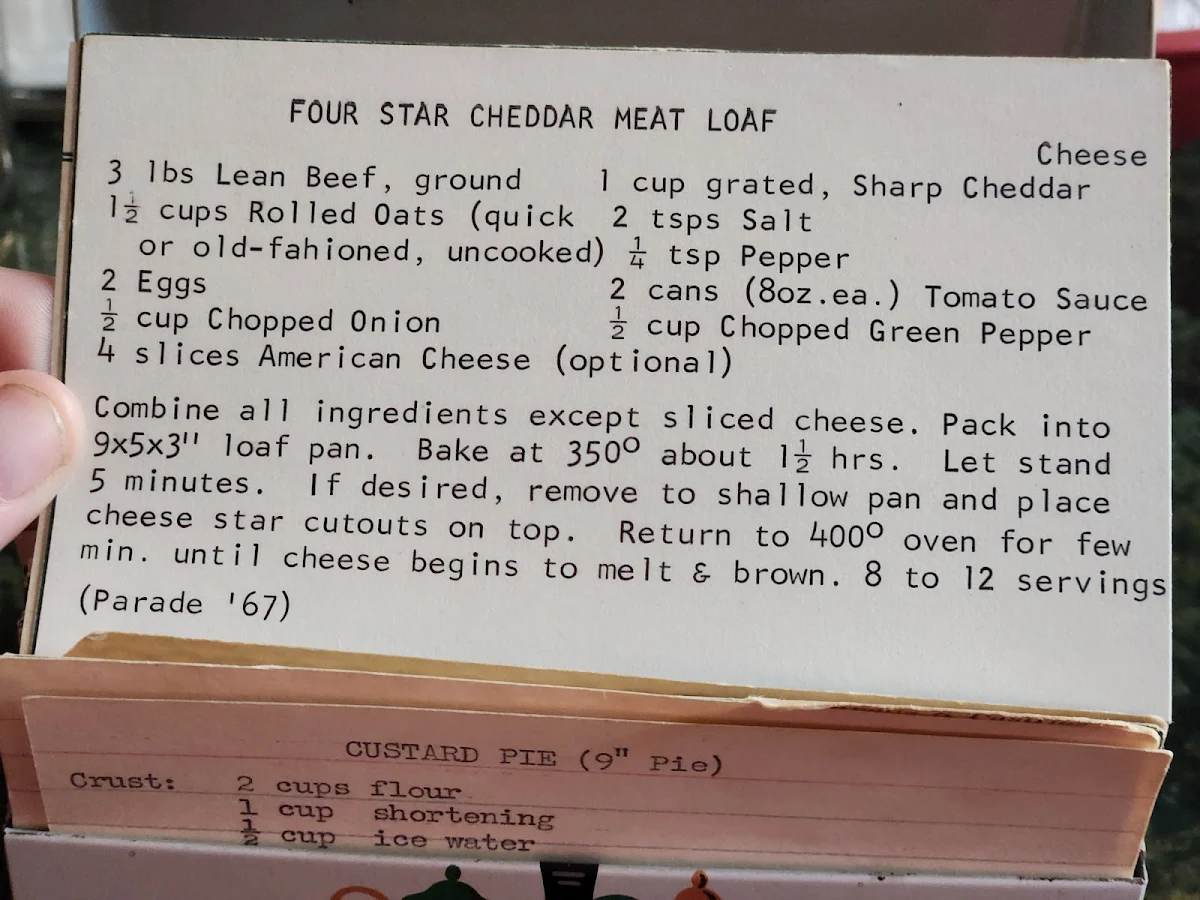 FOUR STAR CHEDDAR MEAT LOAF
Cheese
3 lbs Lean Beef, ground 1 cup grated, Sharp Cheddar
1½ cups Rolled Oats (quick 2 tsps Salt
or old-fahioned, uncooked) ¼ tsp Pepper
2 Eggs 2 cans (8oz.ea.) Tomato Sauce
½ cup Chopped Onion ½ cup Chopped Green Pepper
4 slices American Cheese (optional)
Combine all ingredients except sliced cheese. Pack into
9x5x3" loaf pan. Bake at 350º about 1½ hrs. Let stand
5 minutes. If desired, remove to shallow pan and place
cheese star cutouts on top. Return to 400º oven for few
min. until cheese begins to melt & brown. 8 to 12 servings
(Parade '67)
CUSTARD PIE (9" Pie)
Crust: 2 cups flour
1 cup shortening
½ cup ice water